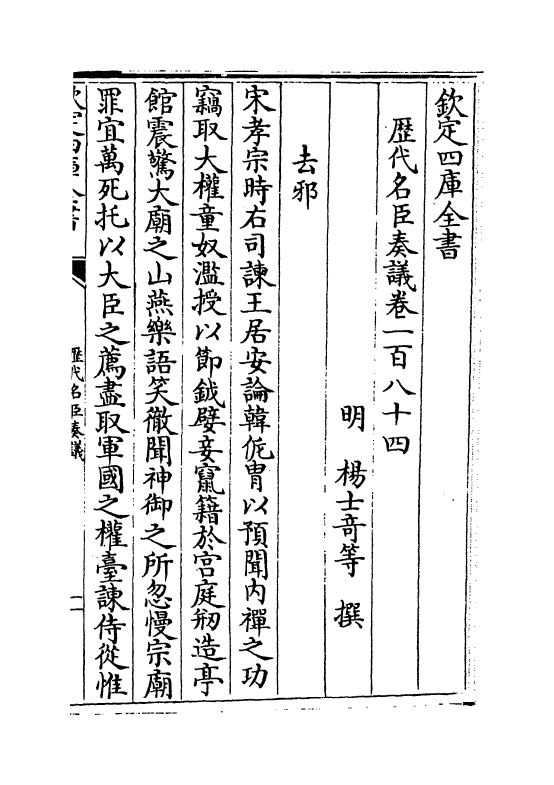 欽定四庫全書
歷代名臣奏議卷一百八十四
明　楊士竒等　撰
去邪
宋孝宗時右司諫王居安論韓侂胄以預聞内禪之功
竊取大權童奴濫授以節鉞嬖妾竄籍於宫庭剏造亭
館震驚太廟之山燕樂語笑徹聞神御之所忽慢宗廟
罪宜萬死托以大臣之薦盡取軍國之權臺諫侍從惟
欽定四庫全書
歷代名臣奏議